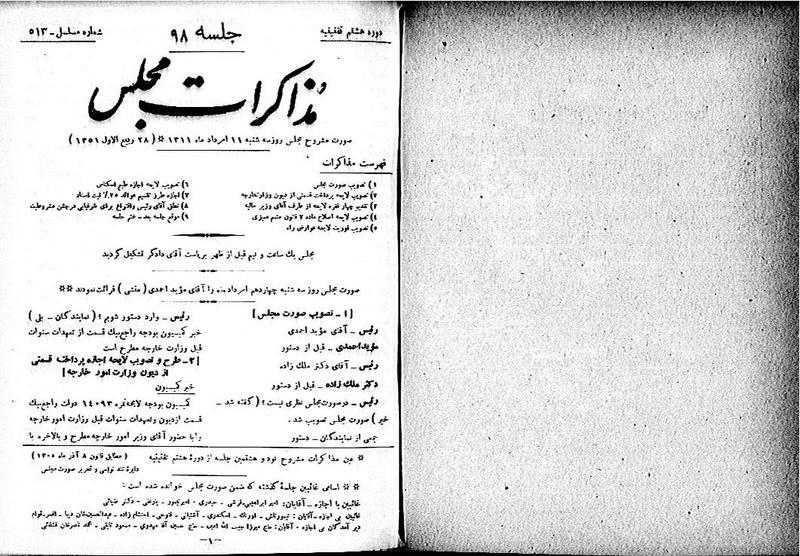 دورهٔ هشتم تقنینیه
جلسه ۹۸
شماره مسلسل - ۵۱۳
مذاکرات مجلس
صورت مشروح مجلس روز سه شنبه ۱۱ امرداد ماه ۱۳۱۱ * ( ۲۸ ربیع الاول ۱۳۵۱ )
فهرست مذاکرات
۱) تصویب صورت مجلس
۲) تصویب لایحه پرداخت قسمتی از دیون وزارتخارجه
۳) تقدیم چهار فقره لایحه از طرف آقای وزیر مالیه
۴) تصویب لایحه اصلاح ماده ۷ قانون متمم ممیزی
۵) تصویب فوریت لایحه عوارض راه
۶) تصویب لایحه اجازه طبع اسکناس
۷) اجازه طرز تقسیم عوائد ۲۵٪ ثبت اسناد
۸) نطق آقای رئیس واقتراع برای شرفیابی درجشن مشروطیت
۹) موقع جلسه بعد - ختم جلسه
مجلس یك ساعت و نیم قبل از ظهر بریاست آقای دادگر تشکیل گردید
صورت مجلس روز سه شنبه چهاردهم امرداد ماه را آقای مؤید احمدی ( منشی ) قرائت نمودند **
[ ۱ - تصویب صورت مجلس ]
رئیس - آقای مؤید احمدی
مؤید احمدی - قبل از دستور
رئیس - آقای دکتر ملك زاده
دکتر ملك زاده - قبل از دستور
رئیس - در صورت مجلس نظری نیست؟ ( گفته شد -
خیر ) صورت مجلس تصویب شد .
جمعی از نمایندگان - دستور
رئیس - وارد دستور شویم ؟ ( نمایندگان - بلی )
خبر کمیسیون بودجه راجع بیك قسمت از تعهدات سنوات
قبل وزارت خارجه مطرح است
[ ۲ - طرح و تصویب لایحه اجازه پرداخت قسمتی
از دیون وزارت امور خارجه ]
خبر کمیسیون
کمیسیون بودجه لایحه نمره ۱۴۰۹۳ دولت راجع بیك
قسمت از دیون و تعهدات سنوات قبل وزارت امور خارجه
را با حضور آقای وزیر امور خارجه مطرح و بالاخره با
* عین مذاکرات مشروح نود و هشتمین جلسه از دورهٔ هشتم تقنینیه
( مطابق قانون ۸ آذر ماه ۱۳۰۵ )
دایرهٔ تند نویسی و تحریر صورت مجلس
** اسامی غائبین جلسهٔ گذشته که ضمن صورت مجلس خوانده شده است :
غائبین با اجازه - آقایان: امیر ابراهیمی - قرشی - حیدری - امیرتیمور - یارعلی - دکتر ضیائی
غائبین بی اجازه - آقایان : تیمورتاش - اورنگ - اسکندری - آشتیانی - فتوحی - احتشام زاده - عبدالحسین خان دیبا - افسر - قوام
دیر آمدگان بی اجازه - آقایان : حاج میرزا حبیب الله امین - حاج حسین آقا مهدوی - مسعود ثابتی - محمد ناصرخان قشقائی
-۱-